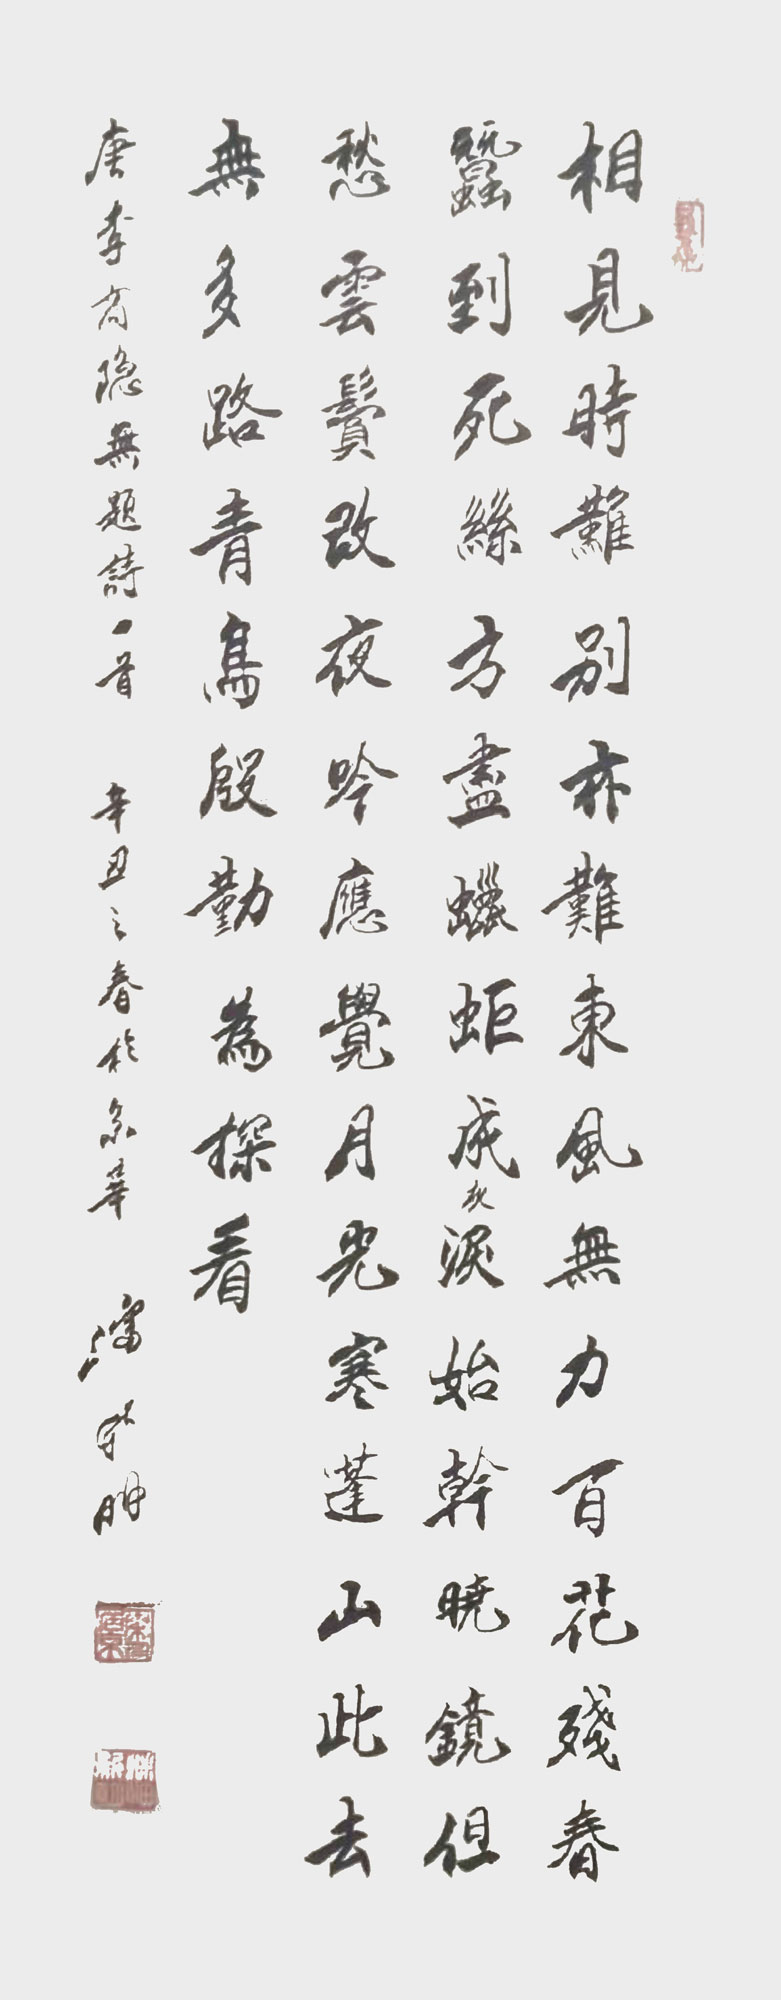 相見時難別亦難東風無力百花殘春
蠶到死絲方盡蠟炬成灰淚始幹曉鏡但
愁雲鬢改夜吟應覺月光寒蓬山此去
無多路青鳥殷勤為探看
唐李商隐無題詩一首 辛丑之春於京華 潘